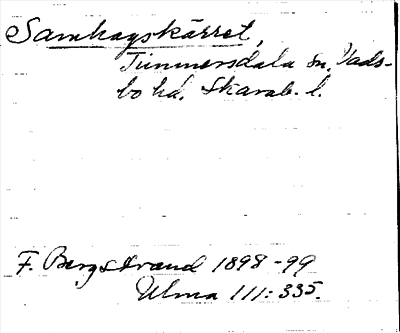 Samhagskärret,
Timmersdala sn, Vads-
bo hd, Skarab. l.
F. Bergstrand 1898-99
Ulma 111: 335.